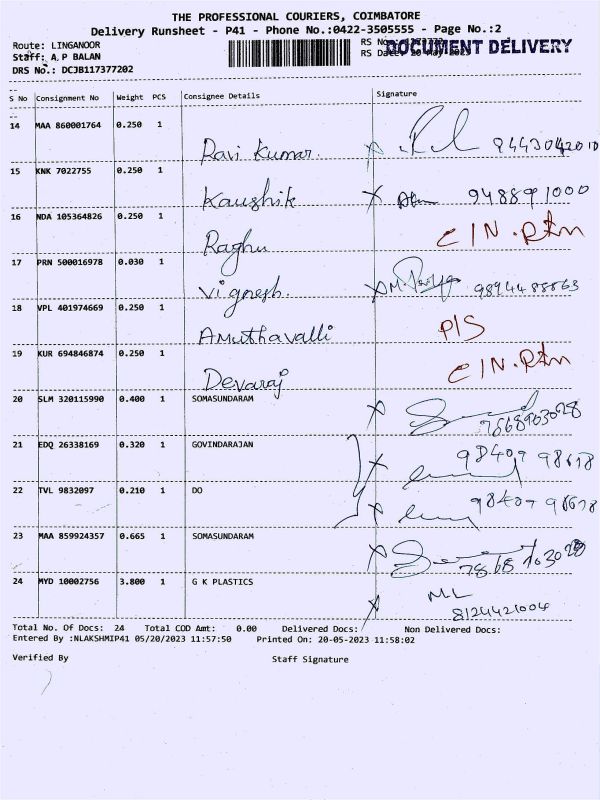 THE PROFESSIONAL COURIERS, COIMBATORE
Delivery Runsheet - P41 - Phone No.:0422-3505555 - Page No.:2
Route: LINGANOOR
RS No.:
DOCUMENT DELIVERY
Staff: A.P BALAN
RS Date: 20 May 2023
DRS No.: DCJB117377202
S No Consignment No Weight PCS Consignee Details Signature
14 MAA 860001764 0.250 1
Ravi Kumar. 9443042010
15 KNK 7022755 0.250 1
Kaushik 948891000
16 NDA 105364826 0.250 1
Raghu C/N. Rtn
17 PRN 500016978 0.030 1
Vignesh. 9894488863
18 VPL 401974669 0.250 1
Amuthavalli P/S
19 KUR 694846874 0.250 1
Devaraj C/N. Rtn
20 SLM 320115990 0.400 1 SOMASUNDARAM
21 EDQ 26338169 0.320 1 GOVINDARAJAN
98409 98618
22 TVL 9832097 0.210 1 DO
98409 98678
23 MAA 859924357 0.665 1 SOMASUNDARAM
24 MYD 10002756 3.800 1 G K PLASTICS
ML
8124421004
Total No. Of Docs: 24 Total COD Amt: 0.00 Delivered Docs: Non Delivered Docs:
Entered By :NLAKSHMIP41 05/20/2023 11:57:50 Printed On: 20-05-2023 11:58:02
Verified By Staff Signature